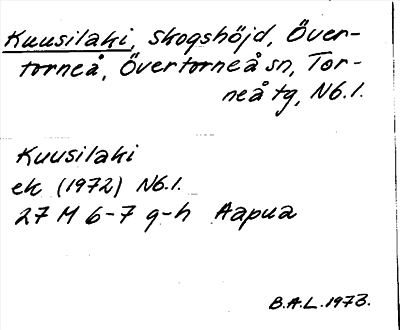 Kuusilaki, skogshöjd, Över-
torneå, Övertorneå sn, Tor-
neå tg, Nb.l.
Kuusilaki
ek (1972) Nb.l.
27 M 6-7 g-h Aapua
B.A.L. 1973.